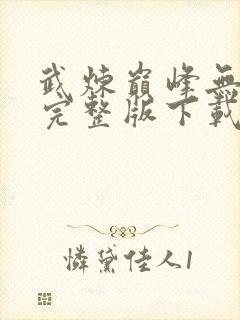 武炼巅峰無
完整版下載
憐黛佳人1